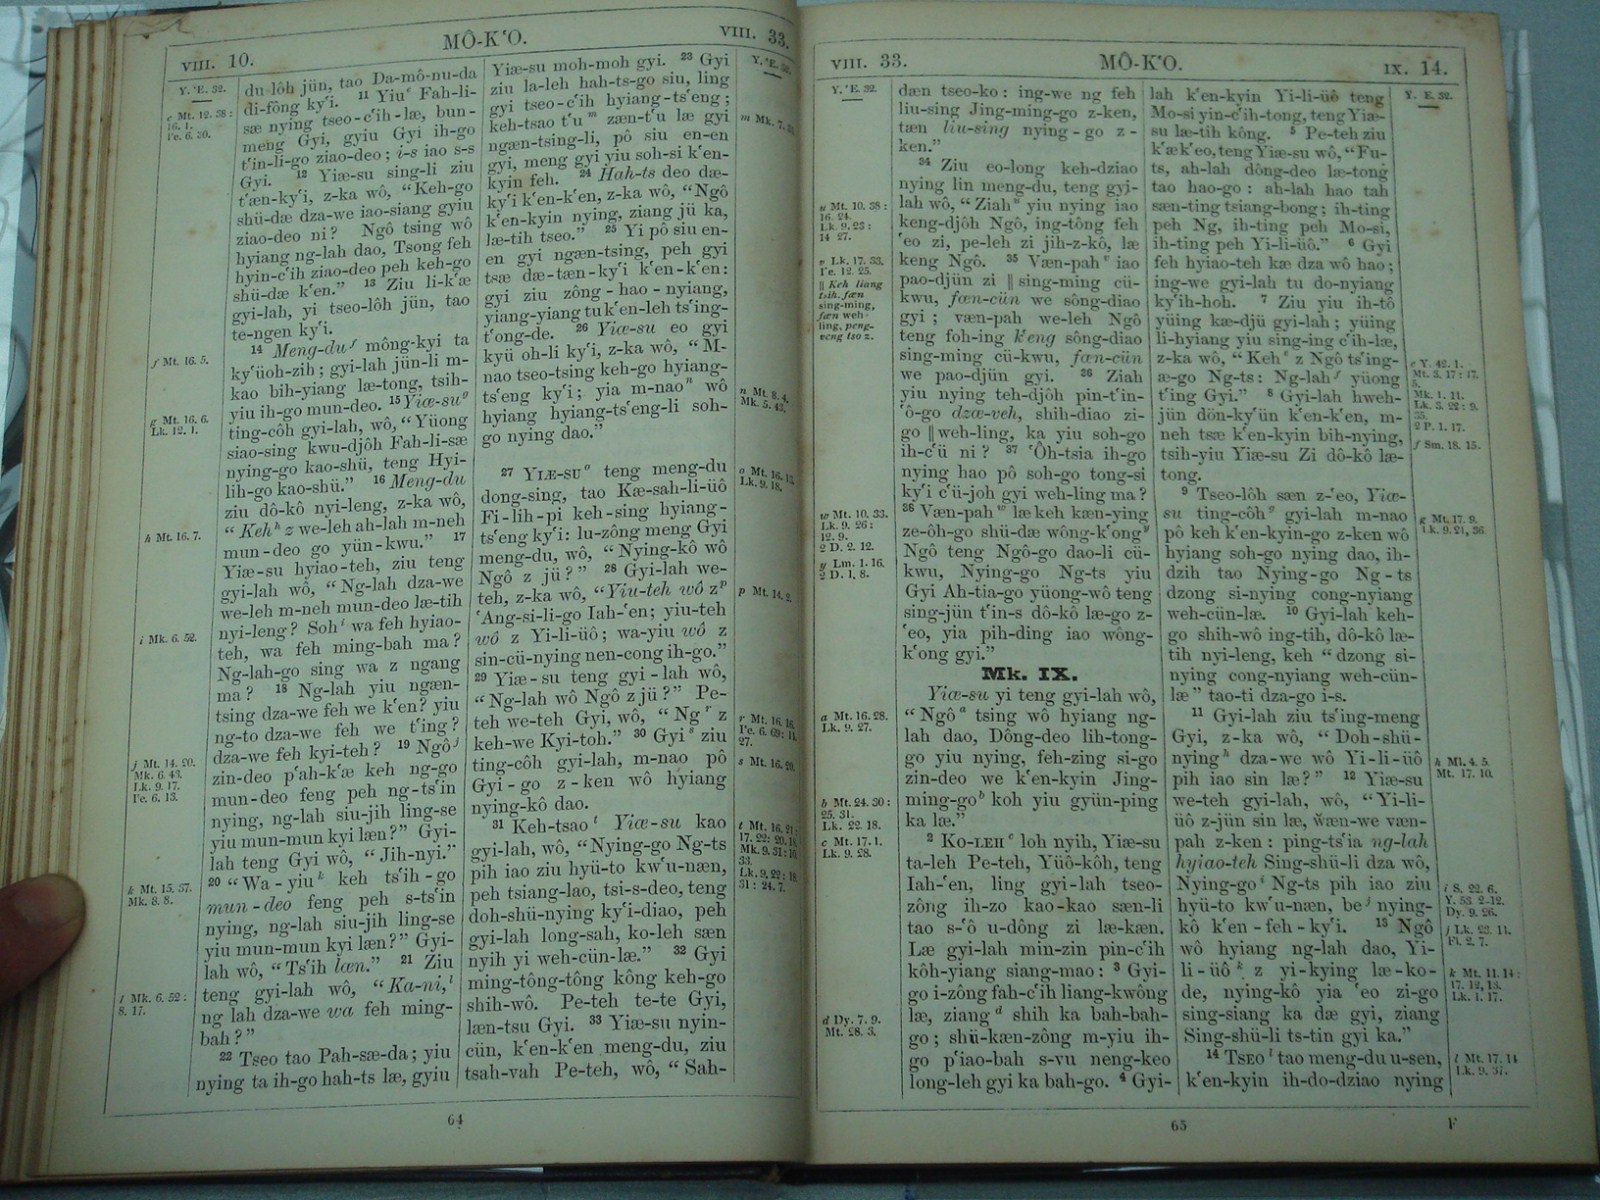 VIII. 10.
MÔ-K‘O.
VIII. 33.
Y. ‘E. 32.
e Mt. 12. 38:
16. 1.
I‘e. 6. 30.
f Mt. 16. 5.
g Mt. 16. 6.
Lk. 12. 1.
h Mt. 16. 7.
i Mk. 6. 52.
j Mt. 14. 20.
Mk. 6. 43.
Lk. 9. 17.
I‘e. 6. 13.
k Mt. 15. 37.
Mk. 8. 8.
l Mk. 6. 52:
8. 17.
du lôh jün, tao Da-mô-nu-da
di-fông ky‘i. 11 Yiu e Fah-li-
sæ nying tseo-c‘ih-læ, bun-
meng Gyi, gyiu Gyi ih-go
t‘in-li-go ziao-deo; i-s iao s-s
Gyi. 12 Yiæ-su sing-li ziu
t‘æn-ky‘i, z-ka wô, “Keh-go
shü-dæ dza-we iao-siang gyiu
ziao-deo ni? Ngô tsing wô
hyiang ng-lah dao, Tsong feh
hyin-c‘ih ziao-deo peh keh-go
shü-dæ k‘en.” 13 Ziu li-k‘æ
gyi-lah, yi tseo-lôh jün, tao
te-ngen ky‘i.
14 Meng-du f mông-kyi ta
ky‘üoh-zih; gyi-lah jün-li m-
kao bih-yiang læ-tong, tsih-
yiu ih-go mun-deo. 15 Yiæ-su g
ting-côh gyi-lah, wô, “Yüong
siao-sing kwu-djôh Fah-li-sæ
nying-go kao-shü, teng Hyi-
lih-go kao-shü.” 16 Meng-du
ziu dô-kô nyi-leng, z-ka wô,
“Keh h z we-leh ah-lah m-neh
mun-deo go yün-kwu.” 17
Yiæ-su hyiao-teh, ziu teng
gyi-lah wô, “Ng-lah dza-we
we-leh m-neh mun-deo læ-tih
nyi-leng? Soh i wa feh hyiao-
teh, wa feh ming-bah ma?
Ng-lah-go sing wa z ngang
ma? 18 Ng-lah yiu ngæn-
tsing dza-we feh we k‘en? yiu
ng-to dza-we feh we t‘ing?
dza-we feh kyi-teh? 19 Ngô j
zin-deo p‘ah-k‘æ keh ng-go
mun-deo feng peh ng-ts‘in
nying, ng-lah siu-jih ling-se
yiu mun-mun kyi læn?” Gyi-
lah teng Gyi wô, “Jih-nyi.”
20 “Wa-yiu k keh ts‘ih-go
mun-deo feng peh s-ts‘in
nying, ng-lah siu-jih ling-se
yiu mun-mun kyi læn?” Gyi-
lah wô, “Ts‘ih læn.” 21 Ziu
teng gyi-lah wô, “Ka-ni, l
ng lah dza-we wa feh ming-
bah?”
22 Tseo tao Pah-sæ-da; yiu
nying ta ih-go hah-ts læ, gyiu
Yiæ-su moh-moh gyi. 23 Gyi
ziu la-leh hah-ts-go siu, ling
gyi tseo-c‘ih hyiang-ts‘eng;
keh-tsao t‘u m zæn-t‘u læ gyi
ngæn-tsing-li, pô siu en-en
gyi, meng gyi yiu soh-si k‘en-
kyin feh. 24 Hah-ts deo dæ-
ky‘i k‘en-k‘en, z-ka wô, “Ngô
k‘en-kyin nying, ziang jü ka,
læ-tih tseo.” 25 Yi pô siu en-
en gyi ngæn-tsing, peh gyi
tsæ dæ-tæn-ky‘i k‘en-k‘en:
gyi ziu zông-hao-nyiang,
yiang-yiang tu k‘en-leh ts‘ing-
t‘ong-de. 26 Yiæ-su eo gyi
kyü oh-li ky‘i, z-ka wô, “M-
nao tseo-tsing keh-go hyiang-
ts‘eng ky‘i; yia m-nao n wô
hyiang hyiang-ts‘eng-li soh-
go nying dao.”
27 YIÆ-SU o teng meng-du
dong-sing, tao Kæ-sah-li-üô
Fi-lih-pi keh-sing hyiang-
ts‘eng ky‘i: lu-zông meng Gyi
meng-du, wô, “Nying-kô wô
Ngô z jü?” 28 Gyi-lah we-
teh, z-ka wô, “Yiu-teh wô z p
‘Ang-si-li-go Iah-‘en; yiu-teh
wô z Yi-li-üô; wa-yiu wô z
sin-cü-nying nen-cong ih-go.”
29 Yiæ-su teng gyi-lah wô,
“Ng-lah wô Ngô z jü?” Pe-
teh we-teh Gyi, wô, “Ng r z
keh-we Kyi-toh.” 30 Gyi s ziu
ting-côh gyi-lah, m-nao pô
Gyi-go z-ken wô hyiang
nying-kô dao.
31 Keh-tsao t Yiæ-su kao
gyi-lah, wô, “Nying-go Ng-ts
pih iao ziu hyü-to kw‘u-næn,
peh tsiang-lao, tsi-s-deo, teng
doh-shü-nying ky‘i-diao, peh
gyi-lah long-sah, ko-leh sæn
nyih yi weh-cün-læ.” 32 Gyi
ming-tông-tông kông keh-go
shih-wô. Pe-teh te-te Gyi,
læn-tsu Gyi. 33 Yiæ-su nyin-
cün, k‘en-k‘en meng-du, ziu
tsah-vah Pe-teh, wô, “Sah-
m Mk. 7.
n Mt. 8. 4.
Mk. 5. 43.
o Mt. 16. 13.
Lk. 9. 18.
p Mt. 14. 2.
r Mt. 16. 16.
I‘e. 6. 69: 11.
27.
s Mt. 16. 20.
t Mt. 16. 21:
17. 22: 20. 18.
Mk. 9. 31: 10.
33.
Lk. 9. 22: 18.
31: 24. 7.
64
VIII. 33.
MÔ-K‘O.
IX. 14.
Y. ‘E. 32.
u Mt. 10. 38:
16. 24.
Lk. 9. 23:
14 27.
v Lk. 17. 33.
I‘e. 12. 25.
‖ Keh liang
tsih. fæn
sing-ming,
fæn weh-
ling, peng-
veng tso z.
w Mt. 10. 33.
Lk. 9. 26:
12. 9.
2 D. 2. 12.
y Lm. 1. 16.
2 D. 1. 8.
a Mt. 16. 28.
Lk. 9. 27.
b Mt. 24. 30:
25. 31.
Lk. 22. 18.
c Mt. 17. 1.
Lk. 9. 28.
d Dy. 7. 9.
Mt. 28. 3.
dæn tseo-ko: ing-we ng feh
liu-sing Jing-ming-go z-ken,
tæn liu-sing nying-go z-
ken.”
34 Ziu eo-long keh-dziao
nying lin meng-du, teng gyi-
lah wô, “Ziah u yiu nying iao
keng-djôh Ngô, ing-tông feh
‘eo zi, pe-leh zi jih-z-kô, læ
keng Ngô. 35 Væn-pah v iao
pao-djün zi ‖ sing-ming cü-
kwu, fæn-cün we sông-diao
gyi; væn-pah we-leh Ngô
teng foh-ing k‘eng sông-diao
sing-ming cü-kwu, fæn-cün
we pao-djün gyi. 36 Ziah
yiu nying teh-djôh pin-t‘in-
‘ô-go dzæ-veh, shih-diao zi-
go ‖ weh-ling, ka yiu soh-go
ih-c‘ü ni? 37 ‘Ôh-tsia ih-go
nying hao pô soh-go tong-si
ky‘i c‘ü-joh gyi weh-ling ma?
38 Væn-pah w læ keh kæn-ying
ze-ôh-go shü-dæ wông-k‘ong y
Ngô teng Ngô-go dao-li cü-
kwu, Nying-go Ng-ts yiu
Gyi Ah-tia-go yüong-wô teng
sing-jün t‘in-s dô-kô læ-go z-
‘eo, yia pih-ding iao wông-
k‘ong gyi.”
Mk. IX.
Yiæ-su yi teng gyi-lah wô,
“Ngô a tsing wô hyiang ng-
lah dao, Dông-deo lih-tong-
go yiu nying, feh-zing si-go
zin-deo we k‘en-kyin Jing-
ming-go b koh yiu gyün-ping
ka læ.”
2 KO-LEH c loh nyih, Yiæ-su
ta-leh Pe-teh, Yüô-kôh, teng
Iah-‘en, ling gyi-lah tseo-
zông ih-zo kao-kao sæn-li
tao s-‘ô u-dông zi læ-kæn.
Læ gyi-lah min-zin pin-c‘ih
kôh-yiang siang-mao: 3 Gyi-
go i-zông fah-c‘ih liang-kwông
læ, ziang d shih ka bah-bah-
go; shü-kæn-zông m-yiu ih-
go p‘iao-bah s-vu neng-keo
long-leh gyi ka bah-go. 4 Gyi-
lah k‘en-kyin Yi-li-üô teng
Mo-si yin-c‘ih-tong, teng Yiæ-
su læ-tih kông. 5 Pe-teh ziu
k‘æ k‘eo, teng Yiæ-su wô, “Fu-
ts, ah-lah dông-deo læ-tong
tao hao-go: ah-lah hao tah
sæn-ting tsiang-bong; ih-ting
peh Ng, ih-ting peh Mo-si,
ih-ting peh Yi-li-üô.” 6 Gyi
feh hyiao-teh kæ dza wô hao;
ing-we gyi-lah tu do-nyiang
ky‘ih-hoh. 7 Ziu yiu ih-tô
yüing kæ-djü gyi-lah; yüing
li-hyiang yiu sing-ing c‘ih-læ,
z-ka wô, “Keh e z Ngô ts‘ing-
æ-go Ng-ts: Ng-lah f yüong
t‘ing Gyi.” 8 Gyi-lah hweh-
jün dön-ky‘ün k‘en-k‘en, m-
neh tsæ k‘en-kyin bih-nying,
tsih-yiu Yiæ-su Zi dô-kô læ-
tong.
9 Tseo-lôh sæn z-‘eo, Yiæ-
su ting-côh g gyi-lah m-nao
pô keh k‘en-kyin-go z-ken wô
hyiang soh-go nying dao, ih-
dzih tao Nying-go Ng-ts
dzong si-nying cong-nyiang
weh-cün-læ. 10 Gyi-lah keh-
go shih-wô ing-tih, dô-kô læ-
tih nyi-leng, keh “dzong si-
nying cong-nyiang weh-cün-
læ” tao-ti dza-go i-s.
11 Gyi-lah ziu ts‘ing-meng
Gyi, z-ka wô, “Doh-shü-
nying h dza-we wô Yi-li-üô
pih iao sin læ?” 12 Yiæ-su
we-teh gyi-lah, wô, “Yi-li-
üô z-jün sin læ, wæn-we væn-
pah z-ken: ping-ts‘ia ng-lah
hyiao-teh Sing-shü-li dza wô,
Nying-go i Ng-ts pih iao ziu
hyü-to kw‘u-næn, be j nying-
kô k‘en-feh-ky‘i. 13 Ngô
wô hyiang ng-lah dao, Yi-
li-üô k z yi-kying læ-ko-
de, nying-kô yia ‘eo zi-go
sing-siang ka dæ gyi, ziang
Sing-shü-li ts-tin gyi ka.”
14 TSEO l tao meng-du u-sen,
k‘en-kyin ih-do-dziao nying
Y. E. 32.
e Y. 42. 1.
Mt. 3. 17: 17.
5.
Mk. 1. 11.
Lk. 3. 22: 9.
35.
2 P. 1. 17.
f Sm. 18. 15.
g Mt. 17. 9.
Lk. 9. 21, 36.
h Ml. 4. 5.
Mt. 17. 10.
i S. 22. 6.
Y. 53. 2-12.
Dy. 9. 26.
j Lk. 23. 11.
Fi. 2. 7.
k Mt. 11. 14:
17. 12, 13.
Lk. 1. 17.
l Mt. 17. 14
Lk. 9. 37.
65
F